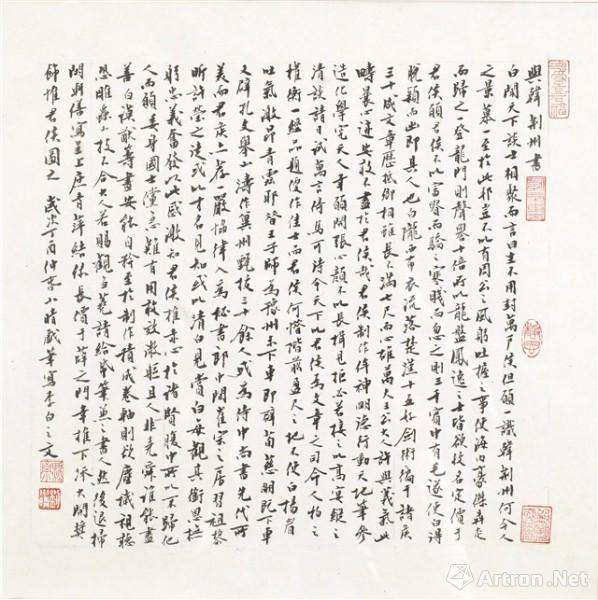 與韓荊州書
白聞天下談士相聚而言曰生不用封萬戶侯但願一識韓荊州何令人
之景慕一至於此耶豈不以有周公之風躬吐握之事使海內豪傑奔走
而歸之一登龍門則聲譽十倍所以龍盤鳳逸之士皆欲收名定價于
君侯願君侯不以富貴而驕之寒賤而忽之則三千賓中有毛遂使白得
脫穎而出即其人也白隴西布衣流落楚漢十五好劍術徧干諸侯
三十成文章歷抵卿相雖長不滿七尺而心雄萬夫王公大人許與義氣此
疇曩心迹安敢不盡於君侯哉君侯制作侔神明德行動天地筆參
造化學究天人幸願開張心顏不以長揖見拒必若接之以高宴縱之
清談請日試萬言倚馬可待今天下以君侯為文章之司命人物之
權衡一經品題便作佳士而君侯何惜階前盈尺之地不使白揚眉
吐氣激昂青雲耶昔王子師為豫州未下車即辟荀慈明既下車
又辟孔文舉山濤作冀州甄拔三十餘人或為侍中尚書先代所
美而君侯亦薦一嚴協律入為秘書郎中間崔宗之房習祖黎
昕許瑩之徒或以才名見知或以清白見賞白每觀其銜恩撫
躬忠義奮發以此感激知君侯推赤心於諸賢腹中所以不歸他
人而願委身國士儻急難有用敢效微軀且人非堯舜誰能盡
善白謨猷籌畫安能自矜至於制作積成卷軸則欲塵穢視聽
恐雕蟲小技不合大人若賜觀芻蕘請給紙筆兼之書人然後退掃
閒軒繕寫呈上庶青萍結綠長價于薛卞之門幸推下流大開獎
飾惟君侯圖之 歲次丁酉仲 戲筆寫李白之文
Artron.Net